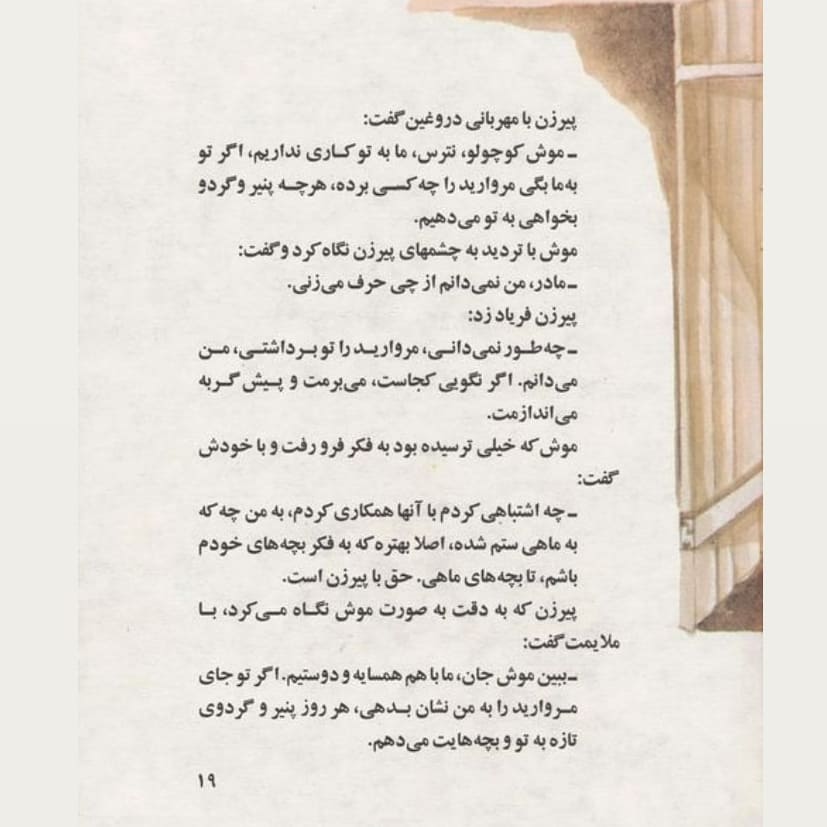 پیرزن با مهربانی دروغین گفت:
ـ موش کوچولو، نترس، ما به تو کاری نداریم، اگر تو
به‌ما بگی مروارید را چه کسی برده، هرچه پنیر و گردو
بخواهی به تو می‌دهیم.
موش با تردید به چشمهای پیرزن نگاه کرد و گفت:
ـ مادر، من نمی‌دانم از چی حرف می‌زنی.
پیرزن فریاد زد:
ـ چه‌طور نمی‌دانی، مروارید را تو برداشتی، من
می‌دانم. اگر نگویی کجاست، می‌برمت و پیش گربه
می‌اندازمت.
موش که خیلی ترسیده بود به فکر فرو رفت و با خودش
گفت:
ـ چه اشتباهی کردم با آنها همکاری کردم، به من چه که
به ماهی ستم شده، اصلا بهتره که به فکر بچه‌های خودم
باشم، تا بچه‌های ماهی. حق با پیرزن است.
پیرزن که به دقت به صورت موش نگاه می‌کرد، با
ملایمت گفت:
ـ ببین موش جان، ما با هم همسایه و دوستیم. اگر تو جای
مروارید را به من نشان بدهی، هر روز پنیر و گردوی
تازه به تو و بچه‌هایت می‌دهم.
۱۹